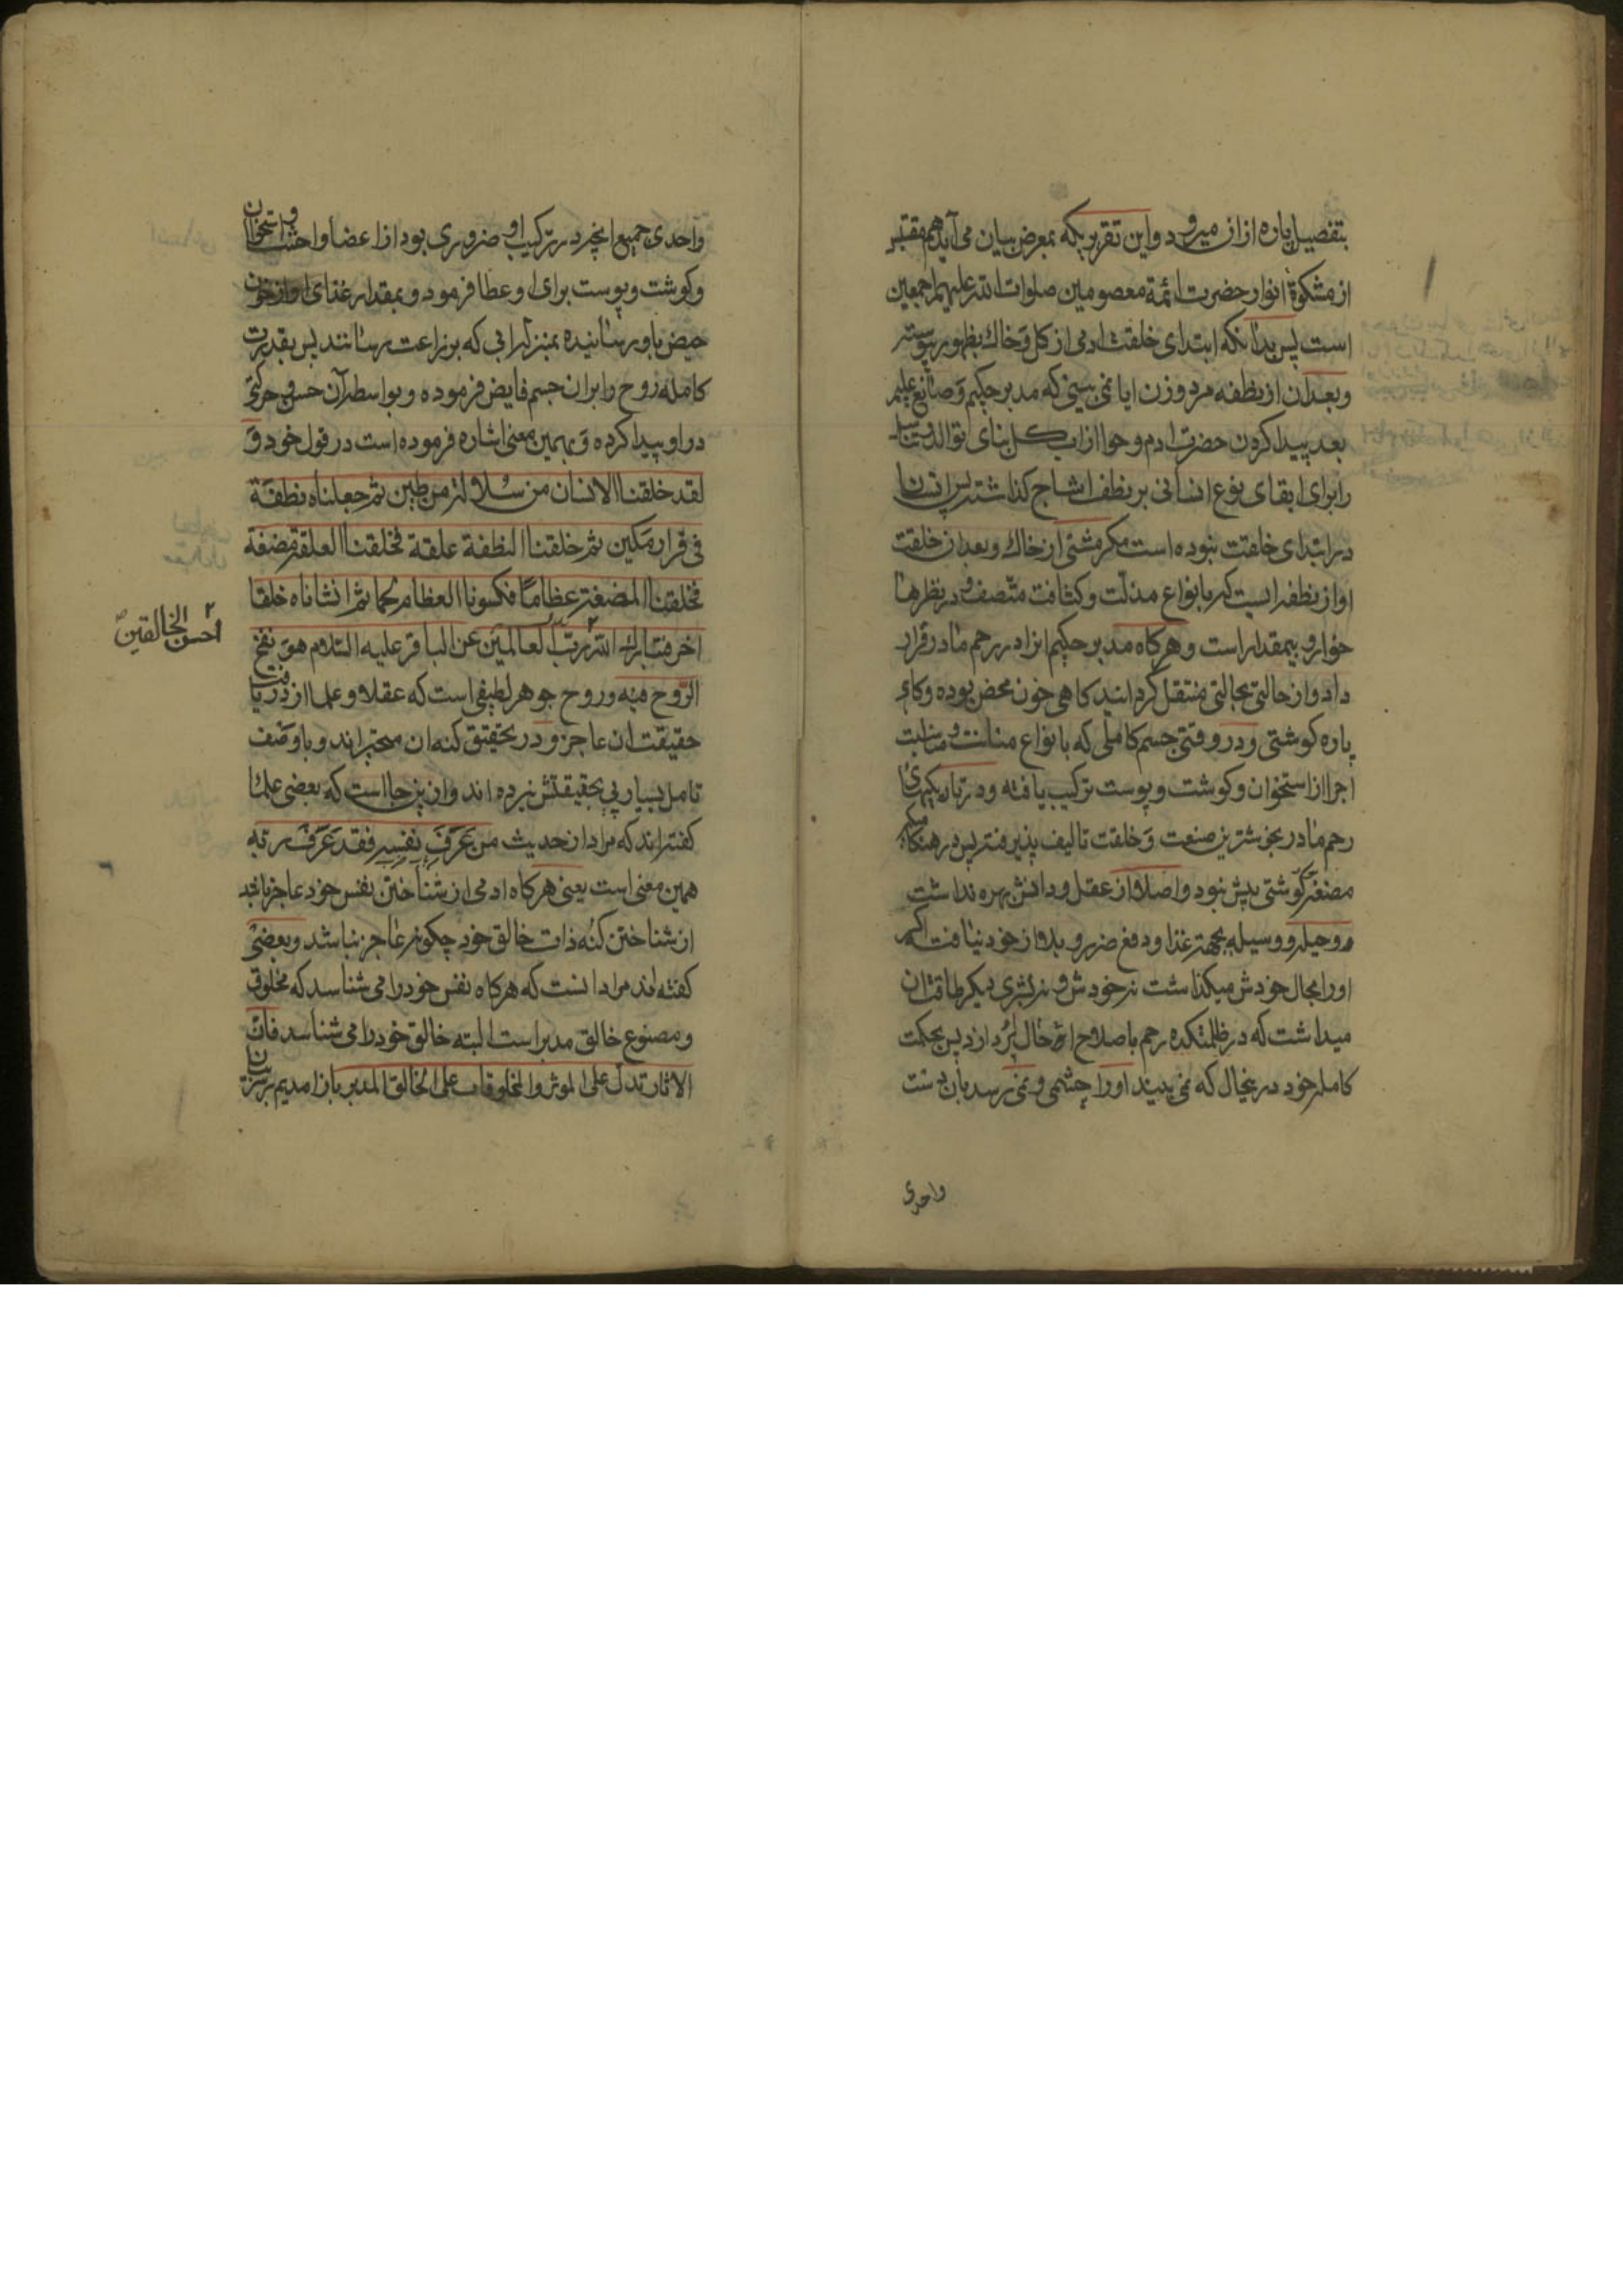 بتفصیل پاره ازان میرود و این تقریریکه بمعرض بیان می آید هم مقتبس
از مشکوة انوار حضرت ائمة معصومین صلوات الله علیهم اجمعین
است پس بدانکه ابتدای خلقت ادمی از کل و خاك بظهور پیوسته
و بعد ان از نطفه مرد و زن ایا نمی بینی که مدبر حکیم و صانع علیم
بعد پیدا کردن حضرت ادم و حوا از اب کل بنای توالد و تناسل
را برای ابقای نوع انسانی بر نطفه امشاج کذاشته پس انسان
در ابتدای خلقت نبوده است مکر مشتی از خاك و بعد از خلقت
او از نطفه ایست که بانواع مذلت و کثافت متصف و در نظرها
خوار و بیمقدار است و هرکاه مدبر حکیم انرا در رحم مادر قرار
داد و از حالتی بحالتی منتقل کرداند کاهی خون محض بوده و کاه
پاره کوشتی و در وقتی جسم کاملی که بانواع متانت و مناسبت
اجزا از استخوان و کوشت و پوست ترکیب یافته و در تاریکیهای
رحم مادر بخوشترین صنعت و خلقت تالیف پذیرفته پس در هنکامیکه
مضغه کوشتی بیش نبود و اصلا از عقل و دانش بهره نداشت
و حیله و وسیله بجهة غذا و دفع ضرر و بلا از خود نیافت اکر
اورا بحال خودش میکذاشت نه خودش و نه بشری دیکر طاقت ان
میداشت که در ظلمتکده رحم باصلاح احوال پردازد پس بحکمت
کامله خود در عیحال که نمی بیند اورا چشمی و نمی رسد بان دست
واحدی
واحدی جمیع انچه در ترکیب او ضروری بود از اعضا و احشا و استخوان
و کوشت و پوست برای او عطا فرمود و بمقدار غذای او از خون
حیض باو رسانیده بمنزله ابی که بزراعت رسانند پس بقدرت
کامله روح را بران جسم فایض فرموده و بواسطه آن حس و حرکتی
در او پیدا کرده و بهمین معنی اشاره فرموده است در قول خود و
لقد خلقنا الانسان من سلالة من طین ثم جعلناه نطفة
فی قرار مکین ثم خلقنا النطفة علقة فخلقنا العلقة مضغة
فخلقنا المضغة عظاما فکسونا العظام لحما ثم انشاناه خلقا
اخر فتبارك الله رب العالمین عن الباقر علیه السلام هو نفخ
احسن الخالقین
الروح فیه و روح جوهر لطیفی است که عقلا و علما از دریافت
حقیقت ان عاجز و در تحقیق کنه ان متحیراند و با وصف
تامل بسیار پی بحقیقتش نبرده اند و از ینجا است که بعضی علما
کفته اند که مراد از حدیث من عرف نفسه فقد عرف ربه
همین معنی است یعنی هرکاه ادمی از شناختن نفس خود عاجز باشد
از شناختن کنه ذات خالق خود چکونه عاجز نباشد و بعضی
کفته اند مراد انست که هرکاه نفس خود را می شناسد که مخلوق
و مصنوع خالق مدبر است البته خالق خود را می شناسد فان
الاثار تدل علی الموثر و المخلوقات علی الخالق المدبر باز امدیم بر سر بیان